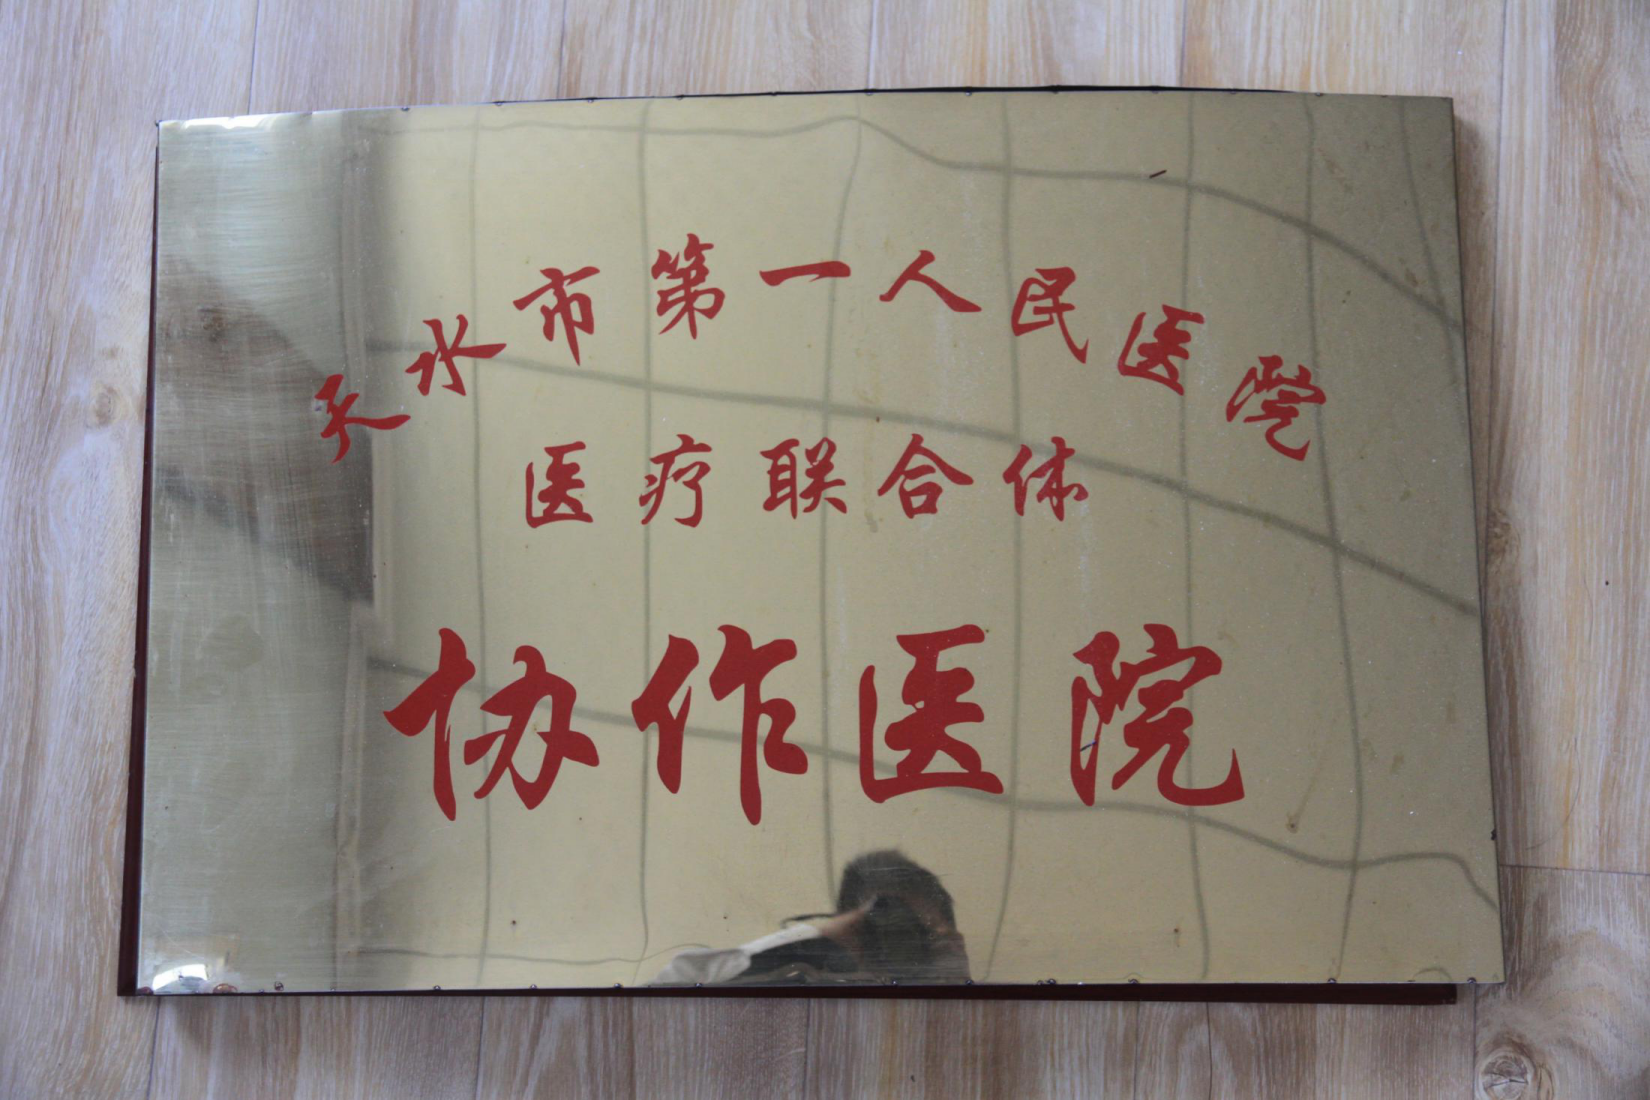 天水市第一人民医院
医疗联合体
协作医院